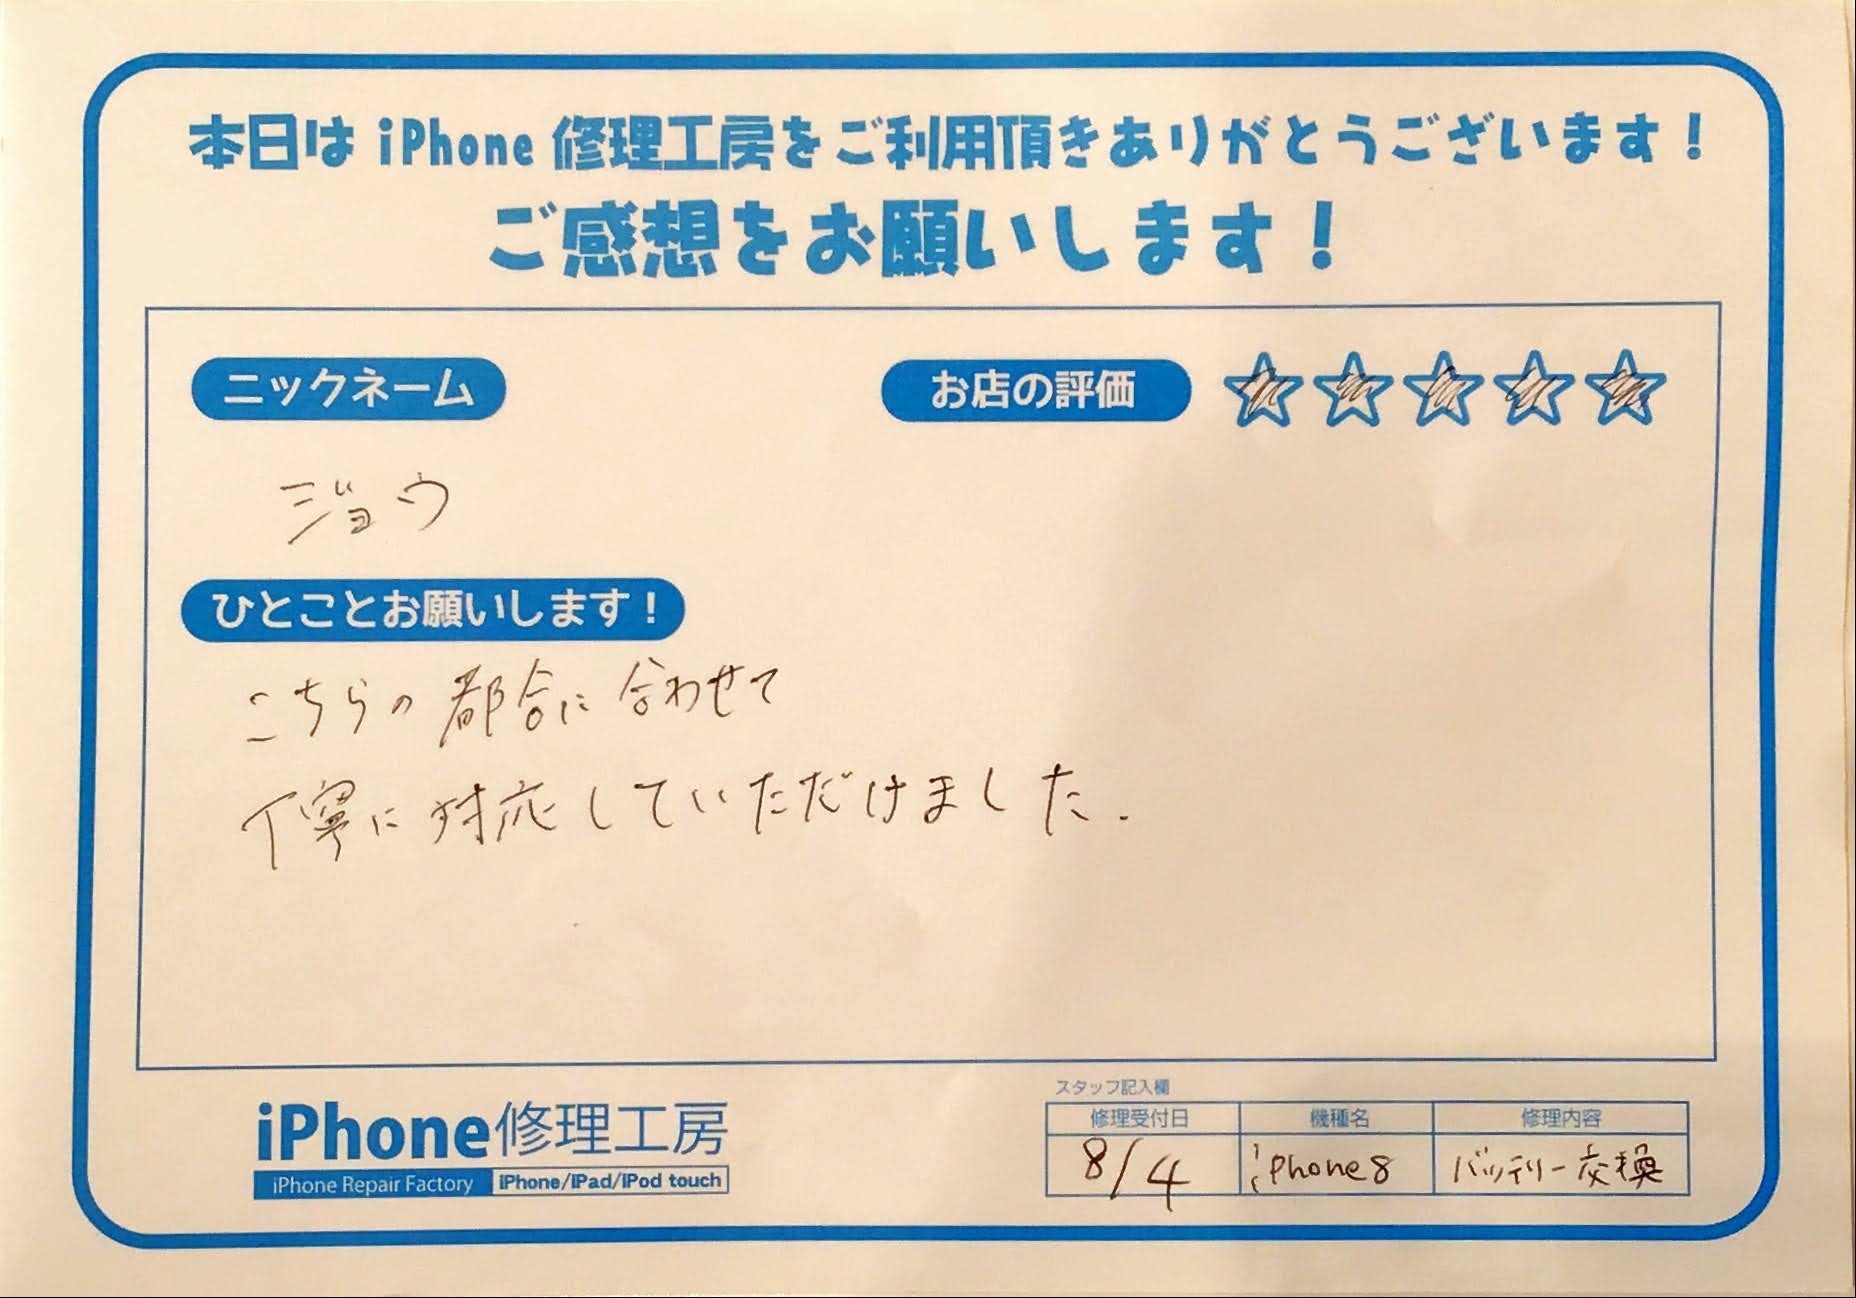 本日は iPhone 修理工房をご利用頂きありがとうございます！
ご感想をお願いします！
ニックネーム
お店の評価
ジョウ
ひとことお願いします！
こちらの都合に合わせて
丁寧に対応していただけました.
iPhone修理工房
iPhone Repair Factory iPhone/iPad/iPod touch
スタッフ記入欄
修理受付日 機種名 修理内容
8/4 iphone8 バッテリー交換